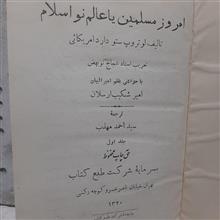 امروز مسلمین یا عالم نو اسلام
تالیف لوتروپ ستودارد امریکائی
تعریب استاد عجاج نویهض
با حواشی بقلم امیر البیان
امیر شکیب ارسلان
ترجمهٔ
سید احمد مهذب
جلد اول
حق چاپ محفوظ
سرمایهٔ شرکت طبع کتاب
تهران خیابان ناصر خسرو کوچه
۱۳۲۰